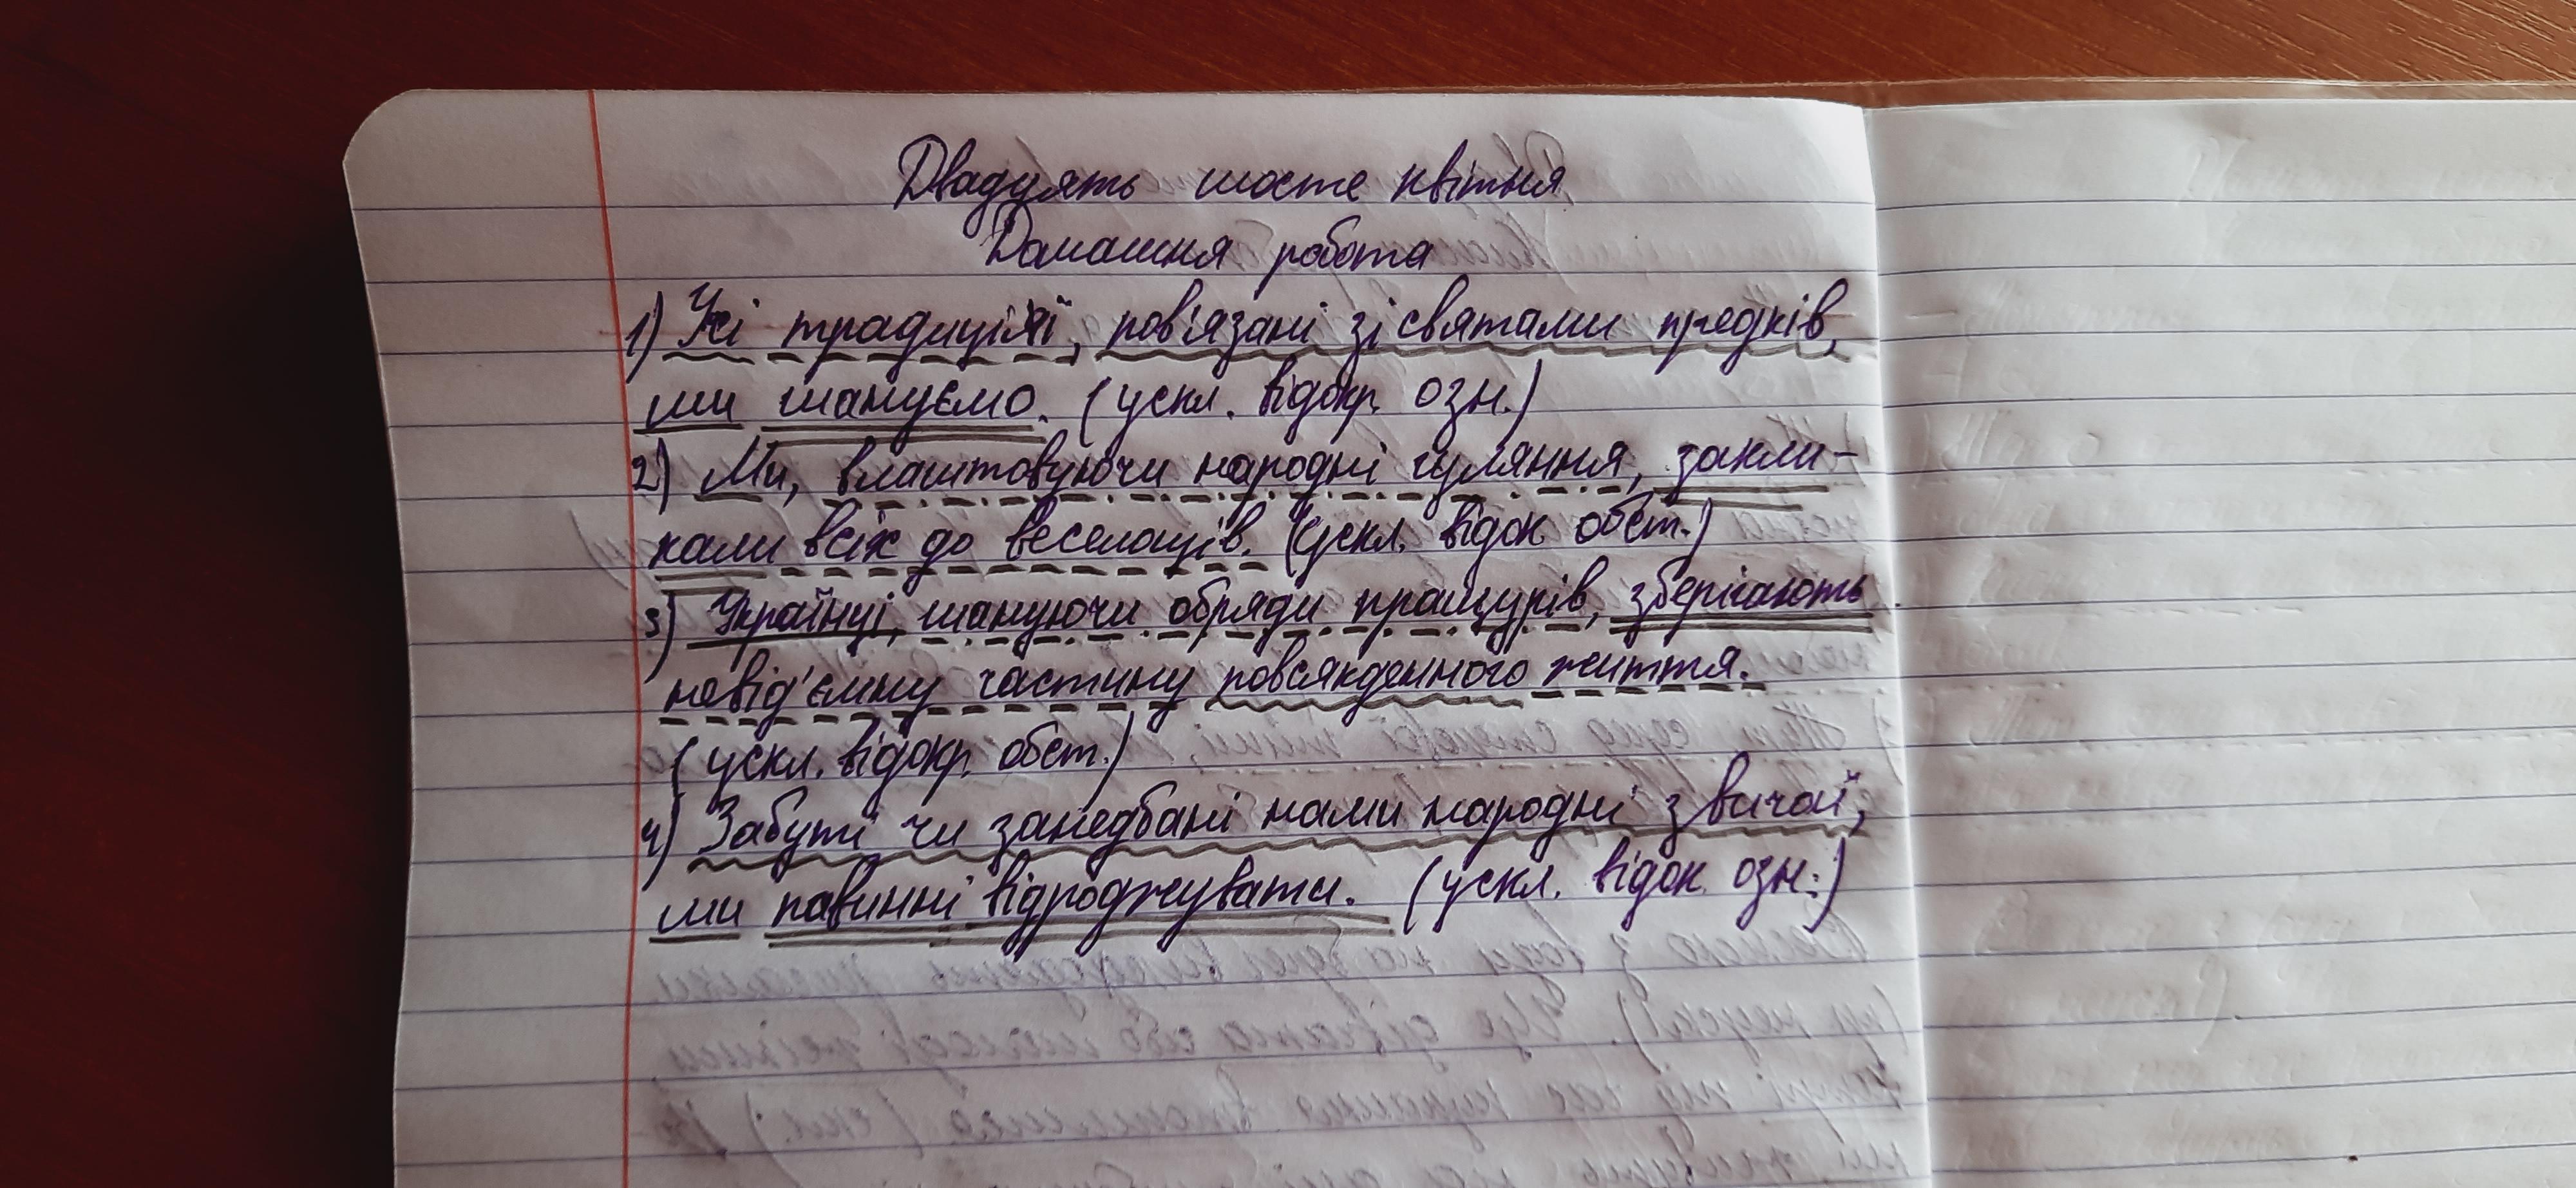 Двадцять шосте квітня
Домашня робота
1) Усі традиції, пов'язані зі святами предків,
ми шануємо. (ускл. відокр. озн.)
2) Ми, влаштовуючи народні гуляння, закли-
кали всіх до веселощів. (ускл. відок. обст.)
3) Українці, шануючи обряди пращурів, зберігають
невід'ємну частину повсякденного життя.
(ускл. відокр. обст.)
4) Забуті чи занедбані нами народні звичаї,
ми повинні відроджувати. (ускл. відок. озн.)